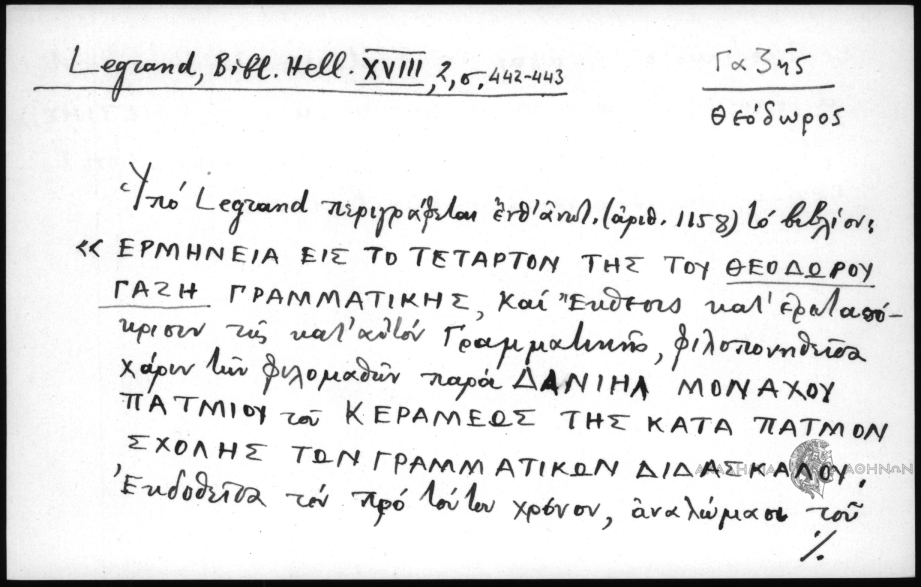 Legrand, Bibl. Hell. XVIII, 2, σ. 442-443
Γαζῆς
Θεόδωρος
Ὑπό Legrand περιγράφεται ἐνθ' ἀνωτ. (ἀριθ. 1158) τό βιβλίον:
« ΕΡΜΗΝΕΙΑ ΕΙΣ ΤΟ ΤΕΤΑΡΤΟΝ ΤΗΣ ΤΟΥ ΘΕΟΔΩΡΟΥ
ΓΑΖΗ ΓΡΑΜΜΑΤΙΚΗΣ, καί Ἔκθεσις κατ' ἐρωταπό-
κρισιν τῆς κατ' αὐτόν Γραμματικῆς, φιλοπονηθεῖσα
χάριν τῶν φιλομαθῶν παρά ΔΑΝΙΗΛ ΜΟΝΑΧΟΥ
ΠΑΤΜΙΟΥ τοῦ ΚΕΡΑΜΕΩΣ ΤΗΣ ΚΑΤΑ ΠΑΤΜΟΝ
ΣΧΟΛΗΣ ΤΩΝ ΓΡΑΜΜΑΤΙΚΩΝ ΔΙΔΑΣΚΑΛΟΥ.
Ἐκδοθεῖσα τόν πρό τούτου χρόνον, ἀναλώμασι τοῦ
./.
ΑΚΑΔΗΜΙΑ ΑΘΗΝΩΝ